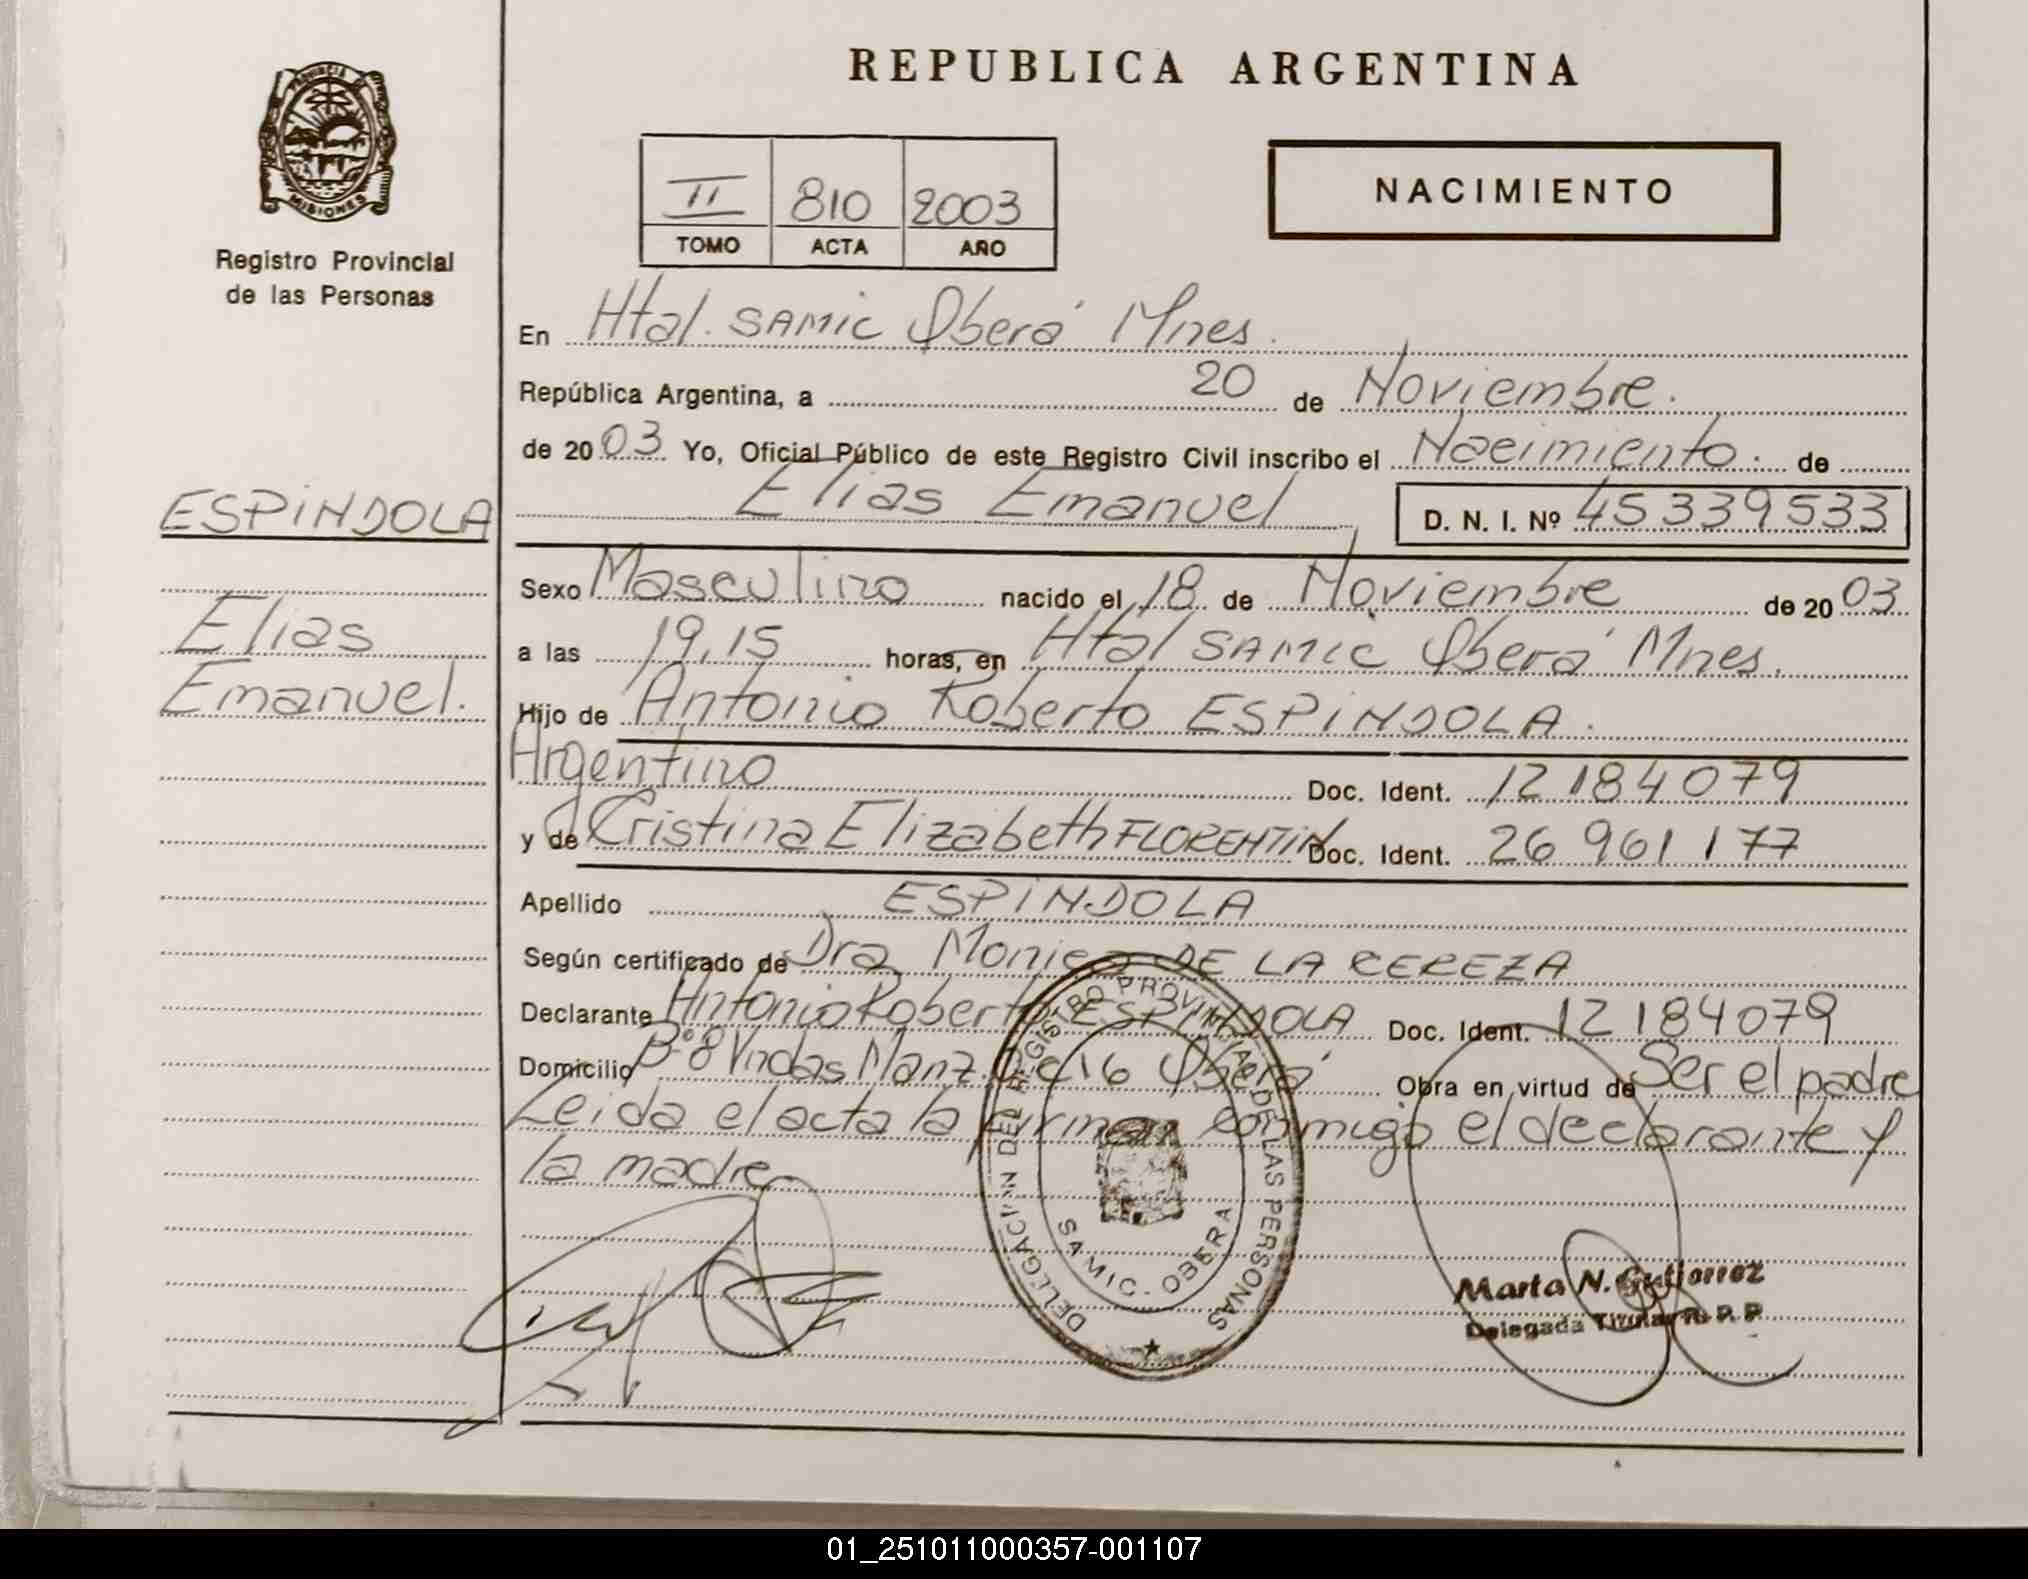 REPUBLICA ARGENTINA
PROVINCIA
MISIONES
Registro Provincial
de las Personas
II 810 2003
TOMO ACTA AÑO
NACIMIENTO
En Htal. SAMIC Oberá Mnes.
República Argentina, a 20 de Noviembre.
de 2003 Yo, Oficial Público de este Registro Civil inscribo el Nacimiento. de
Elias Emanuel D. N. I. Nº 45 339 533
ESPINDOLA
Elias
Emanuel.
Sexo Masculino nacido el 18 de Noviembre de 2003
a las 19,15 horas, en Htal SAMIC Oberá Mnes.
Hijo de Antonio Roberto ESPINDOLA.
Argentino Doc. Ident. 12 184 079
y de Cristina Elizabeth FLORENTIN Doc. Ident. 26 961 177
Apellido ESPINDOLA
Según certificado de Dra Monica DE LA CEREZA
Declarante Antonio Roberto ESPINDOLA Doc. Ident. 12 184 079
Domicilio Bº 8 Vndas Manz. 16 Oberá Obra en virtud de Ser el padre
Leida el acta la firman conmigo el declarante y
la madre
DELEGACION DEL REGISTRO PROVINCIAL DE LAS PERSONAS
SAMIC - OBERA
Marta N. Gutierrez
Delegada Titular R. P. P.
01_251011000357-001107